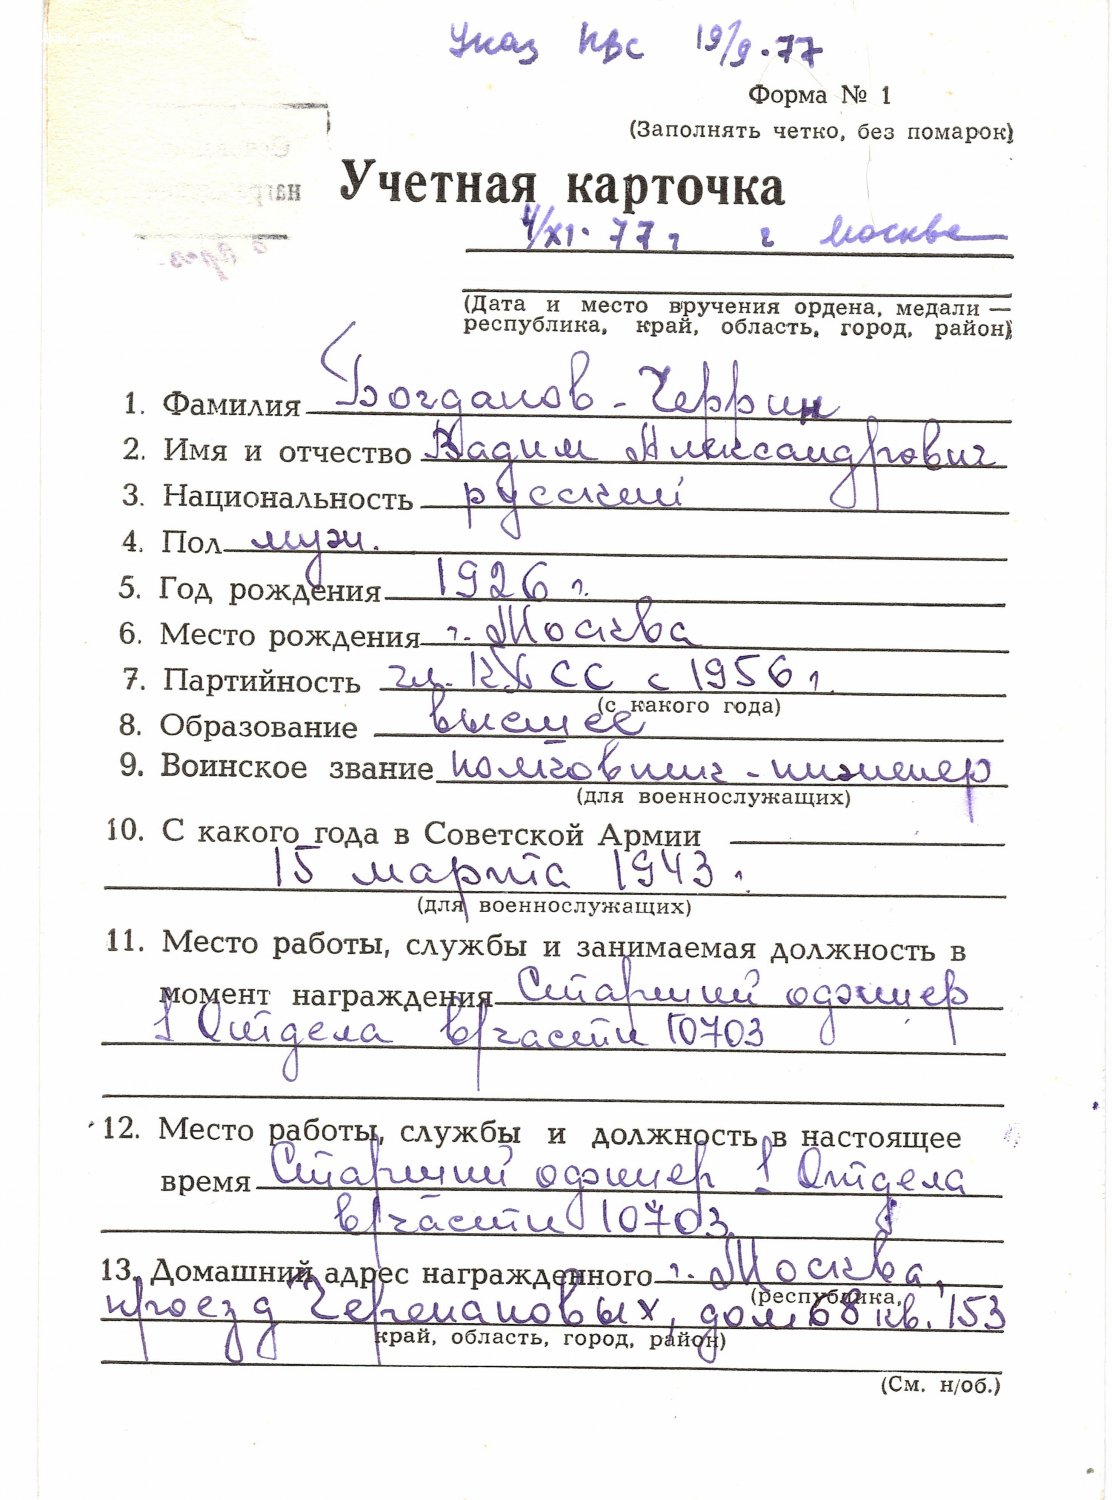 Указ ПВС 19/9.77
Форма № 1
(Заполнять четко, без помарок)
Учетная карточка
4/XI.77 г г Москва
(Дата и место вручения ордена, медали —
республика, край, область, город, район)
1. Фамилия Богданов-Черрин
2. Имя и отчество Вадим Александрович
3. Национальность русский
4. Пол муж.
5. Год рождения 1926 г.
6. Место рождения г. Москва
7. Партийность чл. КПСС с 1956 г.
(с какого года)
8. Образование высшее
9. Воинское звание -инженер
(для военнослужащих)
10. С какого года в Советской Армии
15 марта 1943 г.
(для военнослужащих)
11. Место работы, службы и занимаемая должность в
момент награждения Старший офицер
1 Отдела в/части 10703
12. Место работы, службы и должность в настоящее
время Старший офицер 1 Отдела
в/части 10703
13. Домашний адрес награжденного г. Москва,
(республика,
проезд Черепановых, дом 68 кв. 153
край, область, город, район)
(См. н/об.)